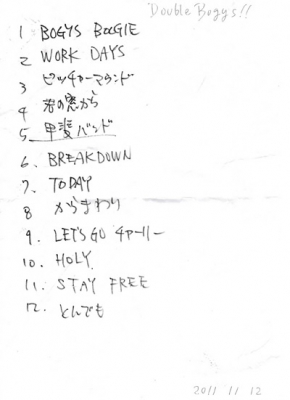 Double Bogy's!!
1 BOGYS BOOGIE
2 WORK DAYS
3 ピッチャーマウンド
4 君の窓から
5 甲斐バンド
6. BREAKDOWN
7. TODAY
8 からまわり
9. LET'S GO チャーリー
10. HOLY
11. STAY FREE
12. とんでも
2011 11 12